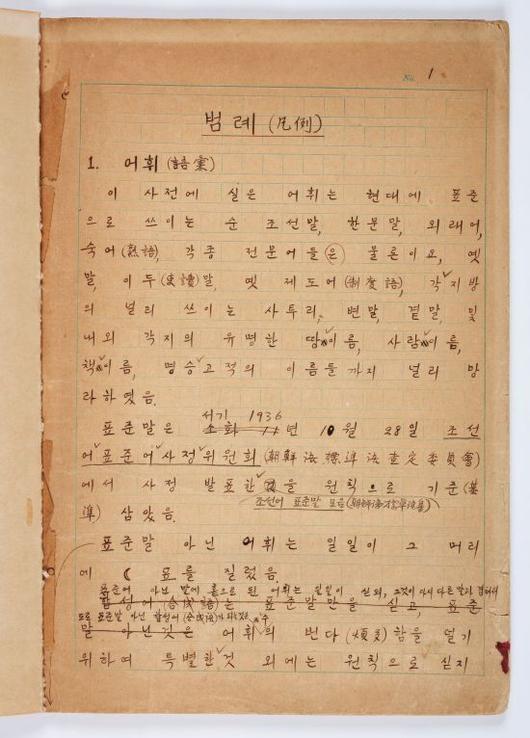 No. 1
범례 (凡例)
1. 어휘 (語彙)
이 사전에 실은 어휘는 현대에 표준
으로 쓰이는 순 조선말, 한문말, 외래어,
숙어 (熟語), 각종 전문어들은 물론이요, 옛
말, 이두 (吏讀)말, 옛 제도어 (制度語), 각 지방
의 널리 쓰이는 사투리, 변말, 곁말, 및
내외 각지의 유명한 땅이름, 사람이름,
책이름, 명승고적의 이름들까지 널리 망
라하였음.
서기 1936
표준말은 소화 11년 10월 28일 조선
어 표준어 사정위원회 (朝鮮語標準語査定委員會)
에서 사정 발표한 을 원칙으로 기준 (基
조선어 표준말 모음
準) 삼았음.
표준말 아닌 어휘는 일일이 그 머리
에 ☾ 표를 질렀음.
표준어 아닌 말에 홑으로 된 어휘는 일일이 싣되, 그것이 다시 다른 말과
합성어 (合成語)는 표준말만을 싣고, 표준
표준말 아닌 합성어 (合成語)
말 아닌 것은 어휘의 번다 (煩多)함을 덜기
위하여 특별한 것 외에는 원칙으로 싣지